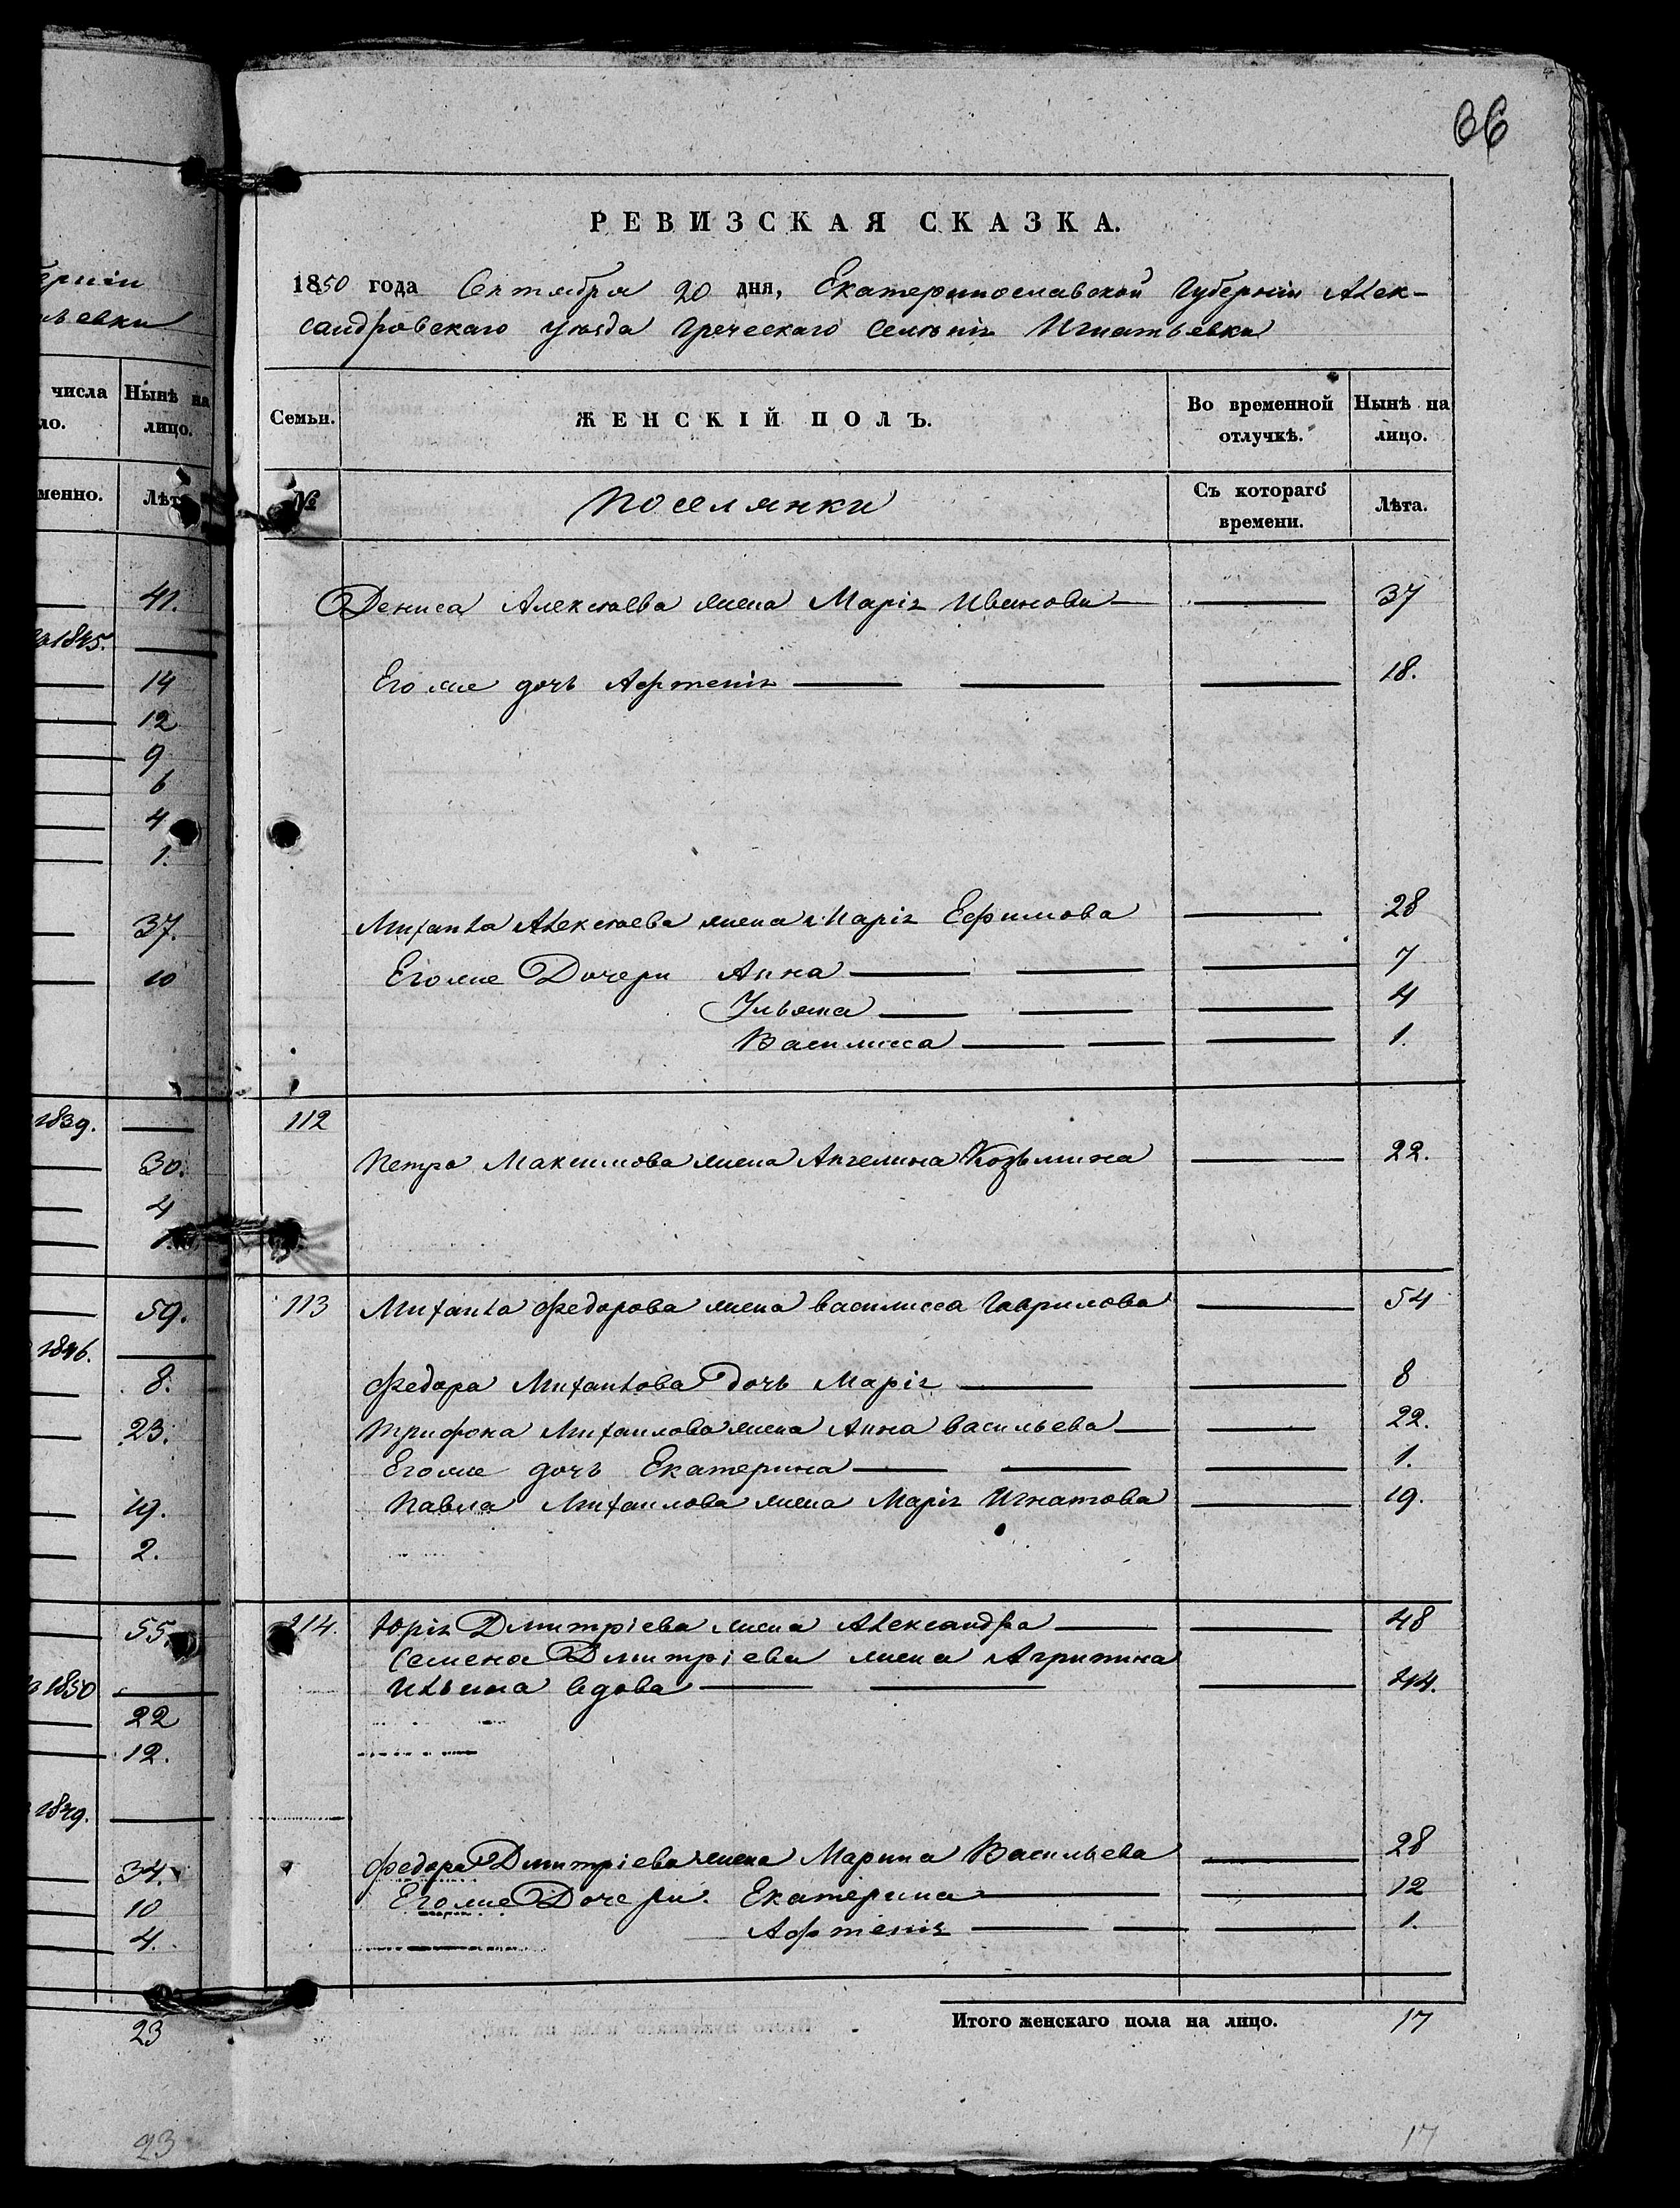 66
РЕВИЗСКАЯ СКАЗКА.
1850 года Сентября 20 дня, Екатеринославской Губерніи Алек-
сандровскаго уѣзда Греческаго Селенія Игнатьевки
Семьи.
ЖЕНСКІЙ ПОЛЪ.
Во временной отлучкѣ.
Нынѣ на лицо.
№
Поселянки
Съ котораго времени.
Лѣта.
Дениса Алексѣева жена Марія Иванова 37
Его же дочь Афтенія 18.
Михаила Алексѣева жена Марія Ефимова 28
Его же Дочери Анна 7
Ульяна 4
Василисса 1.
112
Петра Максимова жена Ангелина Козьмина 22.
113 Михаила Федорова жена Василисса Гаврилова 54
Федора Михайлова дочь Марія 8
Трифона Михайлова жена Анна Васильева 22.
Его же дочь Екатерина 1.
Павла Михайлова жена Марія Игнатова 19.
114. Юрія Дмитріева жена Александра 48
Семена Дмитріева жена Агрипина
Ильина вдова 44.
Федора Дмитріева жена Марина Васильева 28
Его же Дочери. Екатерина 12
Афтенія 1.
Итого женскаго пола на лицо. 17
17
числа
ло.
Нынѣ на
лицо.
менно.
Лѣта
41.
1845.
14
12
9
6
4
1.
37.
10
1839.
30.
4
1.
59.
1846.
8.
23.
19.
2.
55.
1850
22
12.
1849.
34.
10
4.
23
23